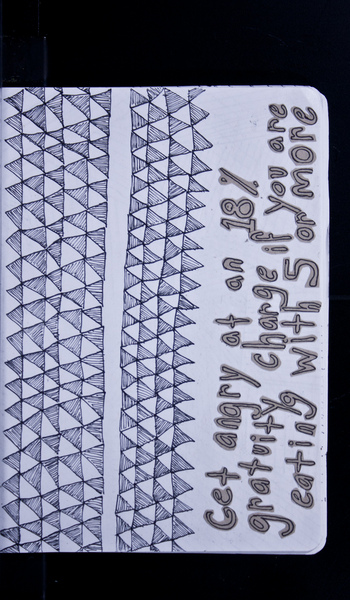 Get angry at an 18%
gratuity charge if you are
eating with 5 or more